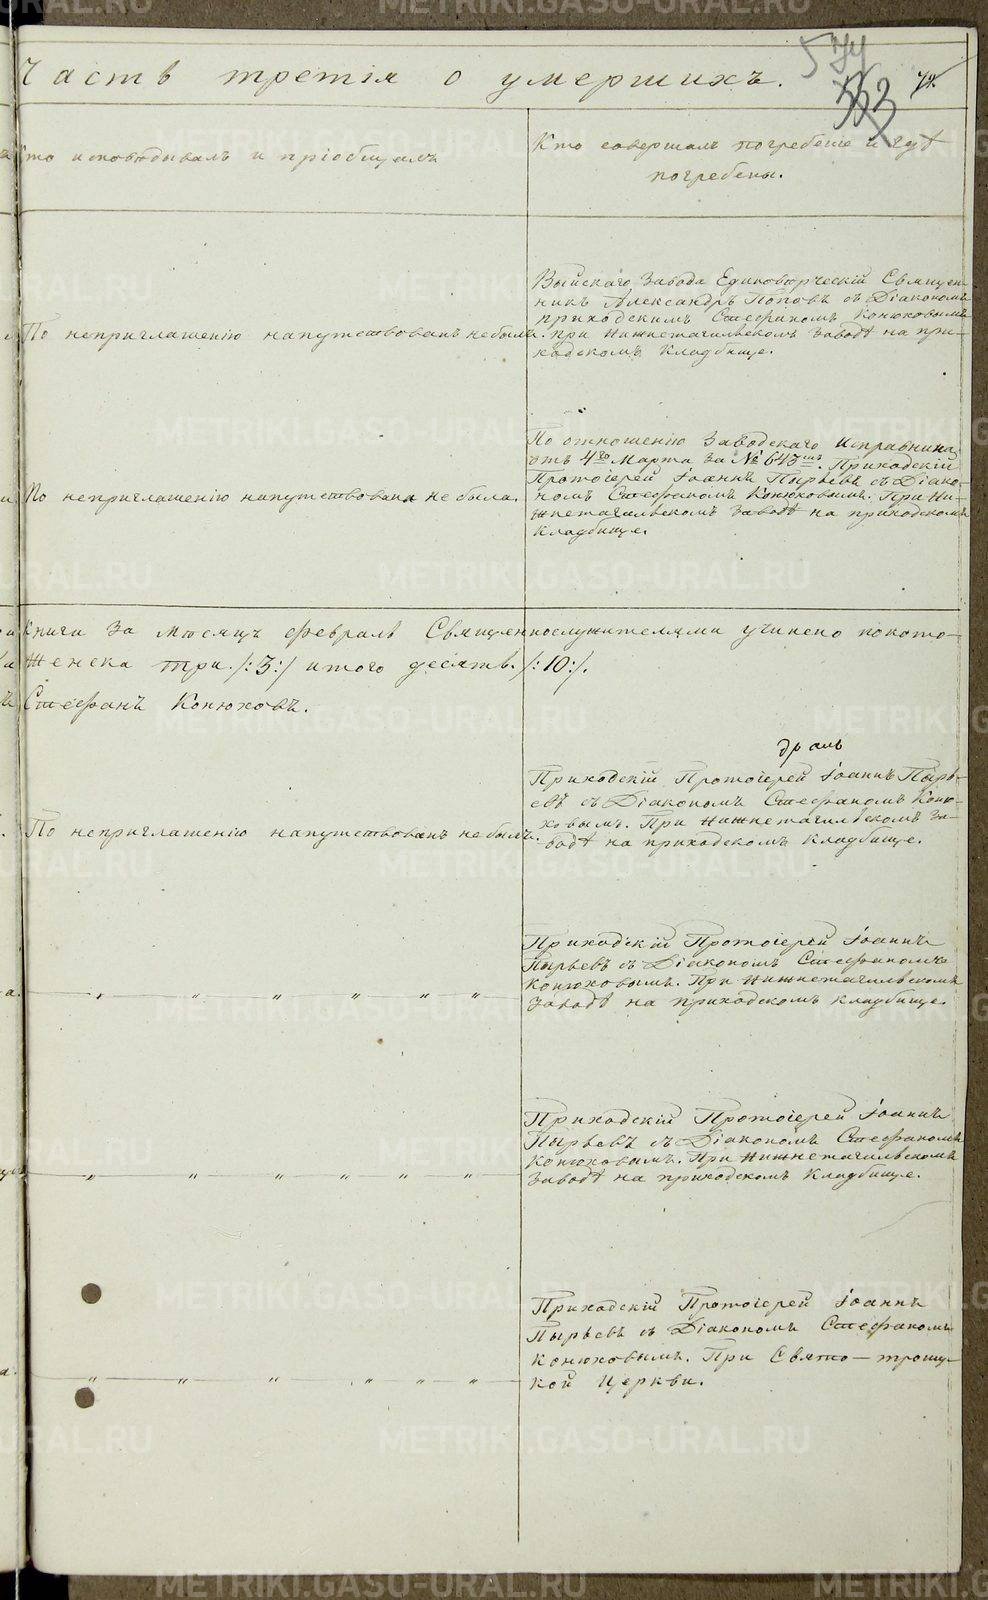 574
553
Часть третія о умершихъ.
Кто исповѣдывалъ и пріобщалъ
Кто совершалъ погребеніе и гдѣ
погребены.
Выйскаго Завода Единовѣрческій Священ-
никъ Александръ Поповъ съ Діакономъ
приходскимъ Стефаномъ Конюховымъ
По неприглашенію напутствованъ не былъ.
при Нижнетагильскомъ Заводѣ на при-
ходскомъ Кладбище.
По отношенію Заводскаго Исправника
отъ 4го Марта за № 643мъ. Приходскій
Протоіерей Іоаннъ Пырьевъ съ Діако-
По неприглашенію напутствована не была.
номъ Стефаномъ Конюховымъ. При Ни-
жнетагильскомъ Заводѣ на приходскомъ
Кладбище.
Книги за мѣсяцъ февраль Священнослужителями учинено покото-
Женска три /:3:/ итого десять. /:10:/.
Стефанъ Конюховъ.
Приходскій Протоіерей Іоаннъ Пырь-
евъ съ Діакономъ Стефаномъ Коню-
ховымъ. При Нижнетагильскомъ За-
По неприглашенію напутствованъ не былъ.
водѣ на приходскомъ Кладбище.
Приходскій Протоіерей Іоаннъ
Пырьевъ съ Діакономъ Стефаномъ
Конюховымъ. При Нижнетагильскомъ
а. „ „ „ „ „ „
Заводѣ на приходскомъ Кладбище.
Приходскій Протоіерей Іоаннъ
Пырьевъ съ Діакономъ Стефаномъ
Конюховымъ. При Нижнетагильскомъ
„ „ „ „ „ „
Заводѣ на приходскомъ Кладбище.
Приходскій Протоіерей Іоаннъ
Пырьевъ съ Діакономъ Стефаномъ
Конюховымъ. При Свято-троиц-
а. „ „ „ „ „ „
кой Церкви.
METRIKI.GASO-URAL.RU